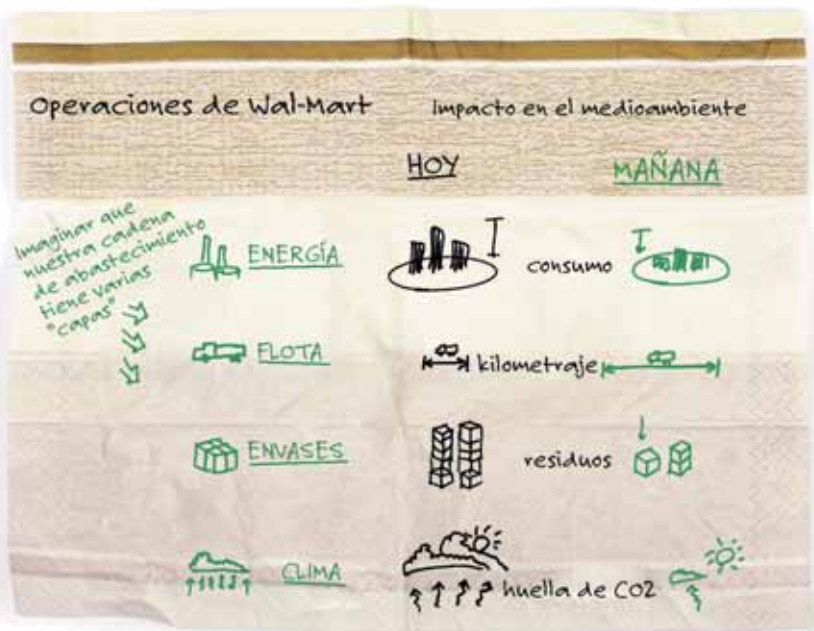 Operaciones de Wal-Mart
Impacto en el medioambiente
HOY
MAÑANA
Imaginar que
nuestra cadena
de abastecimiento
tiene varias
"capas"
ENERGÍA
consumo
FLOTA
kilometraje
ENVASES
residuos
CLIMA
huella de CO2